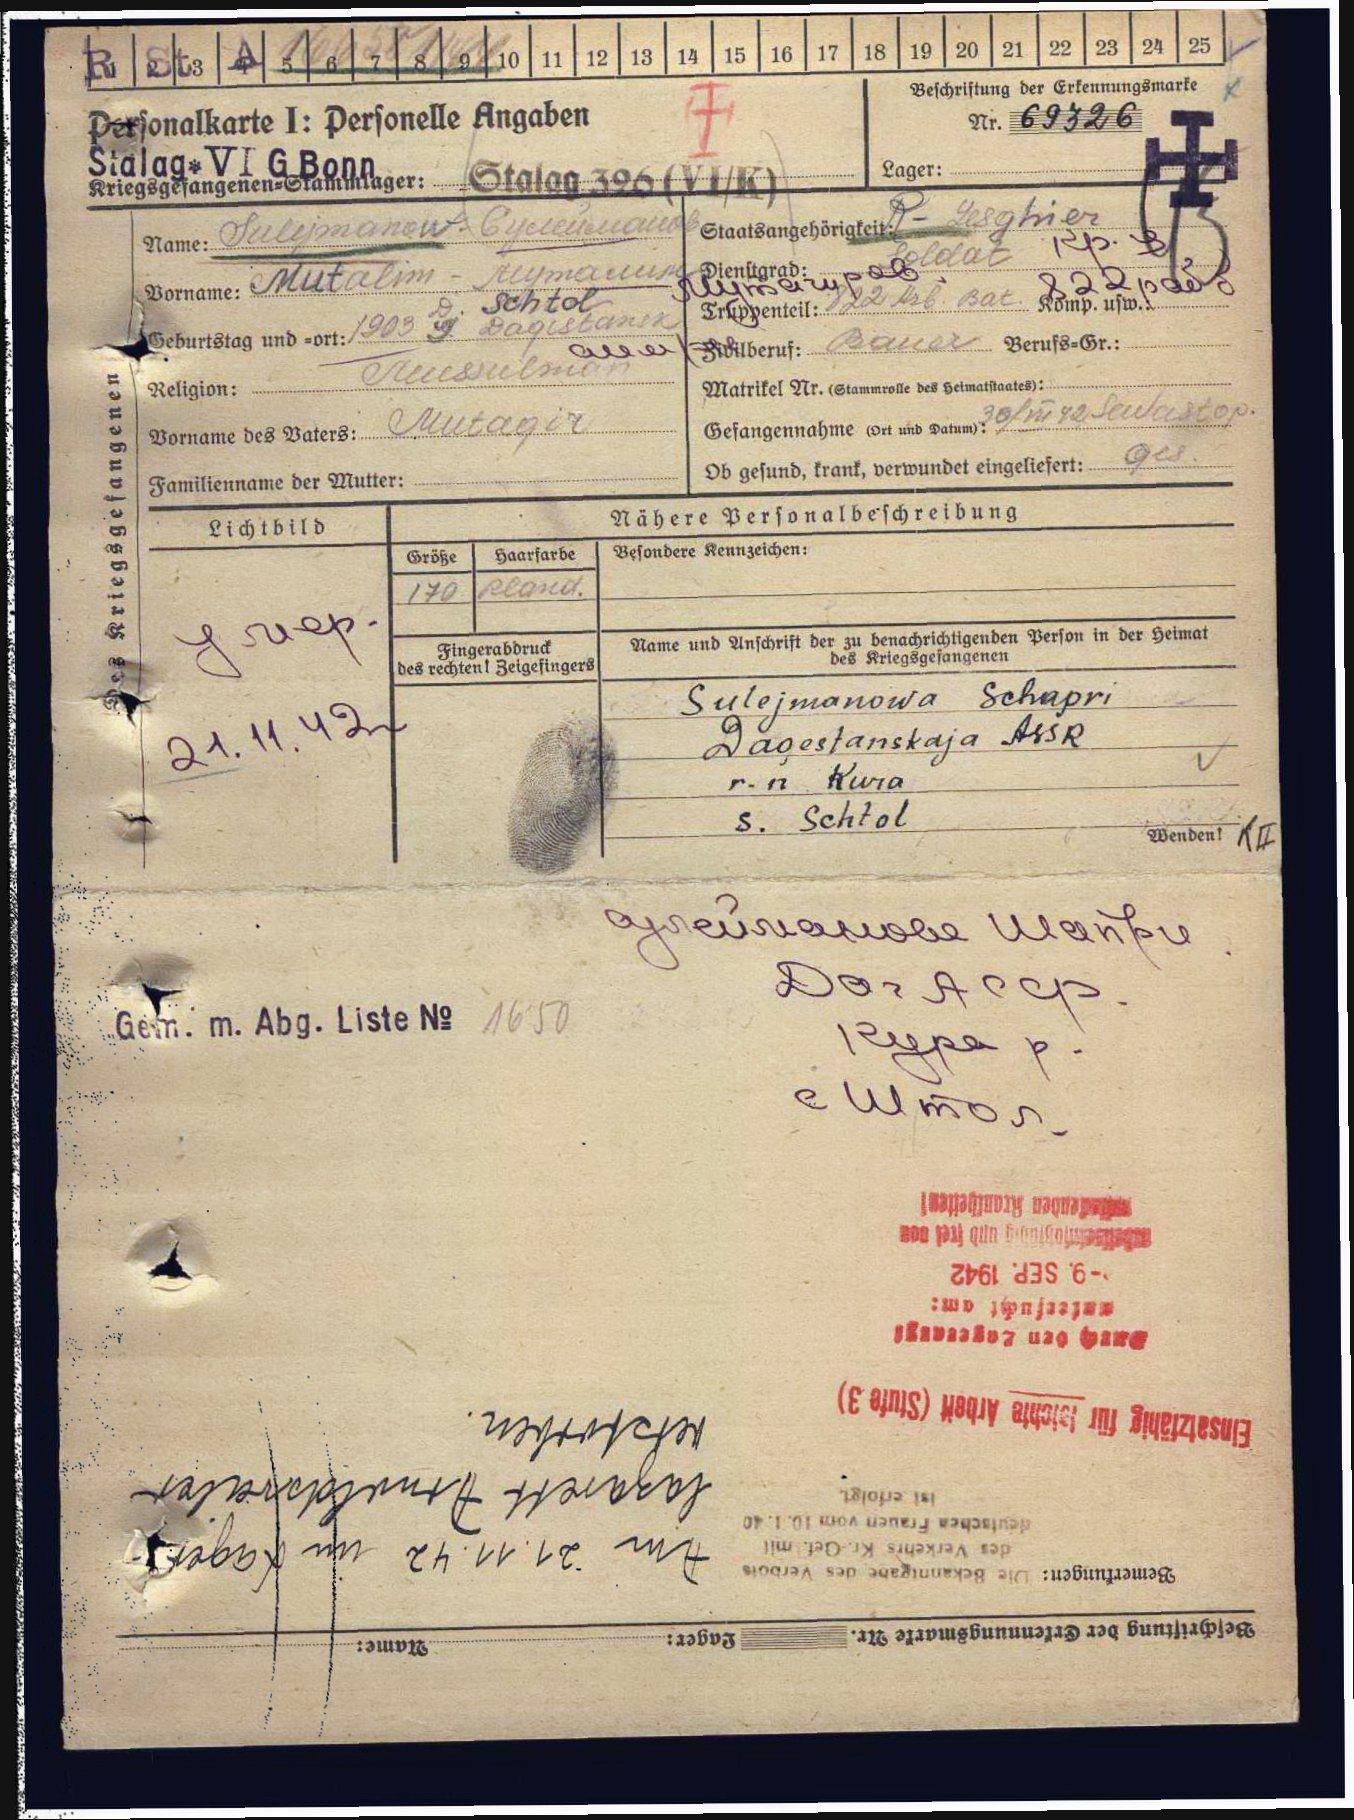 R St A 5 6 7 8 9 10 11 12 13 14 15 16 17 18 19 20 21 22 23 24 25
Personalkarte I: Personelle Angaben
Stalag VI G Bonn
Kriegsgefangenen-Stammlager: Stalag 326 (VI/K)
Beschriftung der Erkennungsmarke
Nr. 69326
Lager:
Des Kriegsgefangenen
Name: Sulejmanow - Сулейманов
Vorname: Mutalim - Муталим
Geburtstag und -ort: 1903 D. Schtol Dagistansk
Religion: Mussulman
Vorname des Vaters: Mutagir
Familienname der Mutter:
Staatsangehörigkeit: R- Lesghier
Dienstgrad: Soldat
Truppenteil: 822 Arb Bat. Komp. usw.:
Кр. 822 раб
Zivilberuf: Bauer Berufs-Gr.:
Matrikel Nr. (Stammrolle des Heimatstaates):
Gefangennahme (Ort und Datum): 42 Sewastop.
Ob gesund, krank, verwundet eingeliefert: ges.
Lichtbild
Nähere Personalbeschreibung
Größe Haarfarbe Besondere Kennzeichen:
170 bland.
Fingerabdruck
des rechten! Zeigefingers
Name und Anschrift der zu benachrichtigenden Person in der Heimat
des Kriegsgefangenen
Sulejmanowa Schapri
Dagestanskaja ASSR
r-n Kura
s. Schtol
Wenden! K II
умер.
21.11.42
Сулейманова Шапри
Даг АССР.
Кура р.
с Штол
Gem. m. Abg. Liste No 1650
Beschriftung der Erkennungsmarke Nr. Lager: Name:
Bemerkungen: Die Bekanntgabe des Verbots
des Verkehrs Kr.-Gef. mit
deutschen Frauen vom 10.1.40
ist erfolgt.
Am 21.11.42 im Lager
lazarett Arnoldsweiler
verstorben.
Einsatzfähig für leichte Arbeit (Stufe 3)
Durch den Lagerarzt
untersucht am:
-9. SEP. 1942
und frei von
ansteckenden Krankheiten!